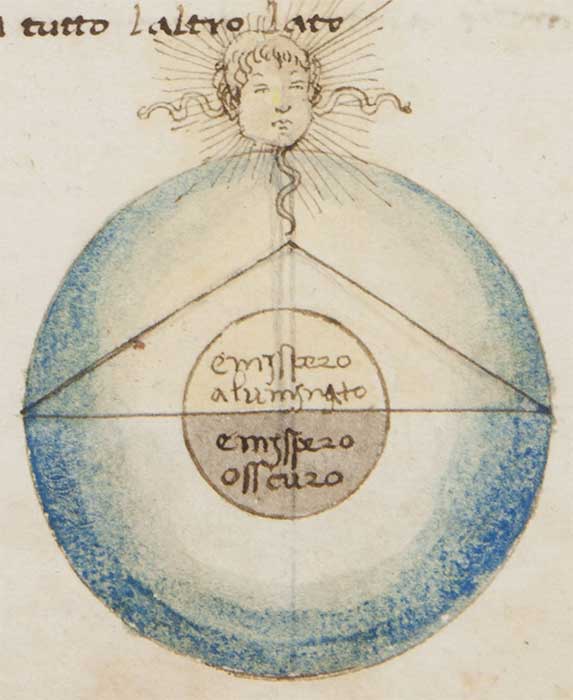 tutto laltro lato
emispero
aluminato
emispero
osscuro